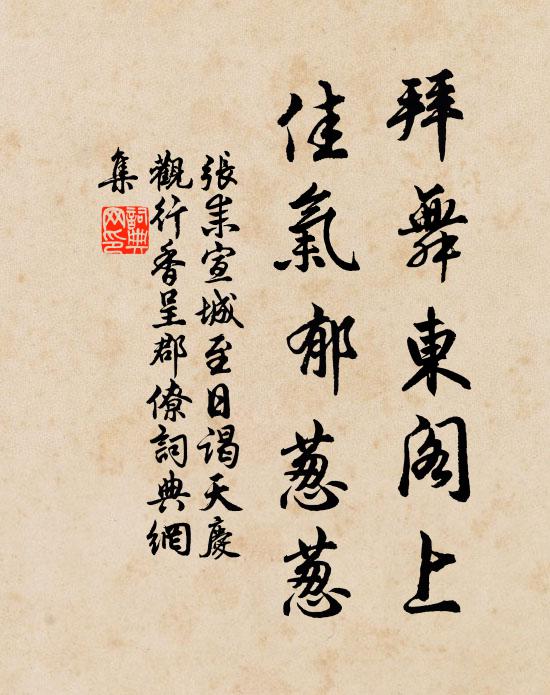 拜舞東閣上
佳氣郁葱葱
張耒宣城至日謁天慶
觀行香呈郡僚詞典網
集
詞典
网印